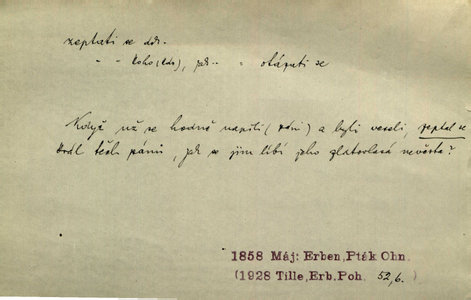 zeptati se
- - koho (čeho), jak.. = otázati se
Když už se hodně napili (páni) a byli veselí, zeptal se
král těch pánů, jak se jim líbí jeho zlatovlasá nevěsta?
1858 Máj: Erben, Pták Ohn.
(1928 Tille, Erb. Poh. 52, 6.)